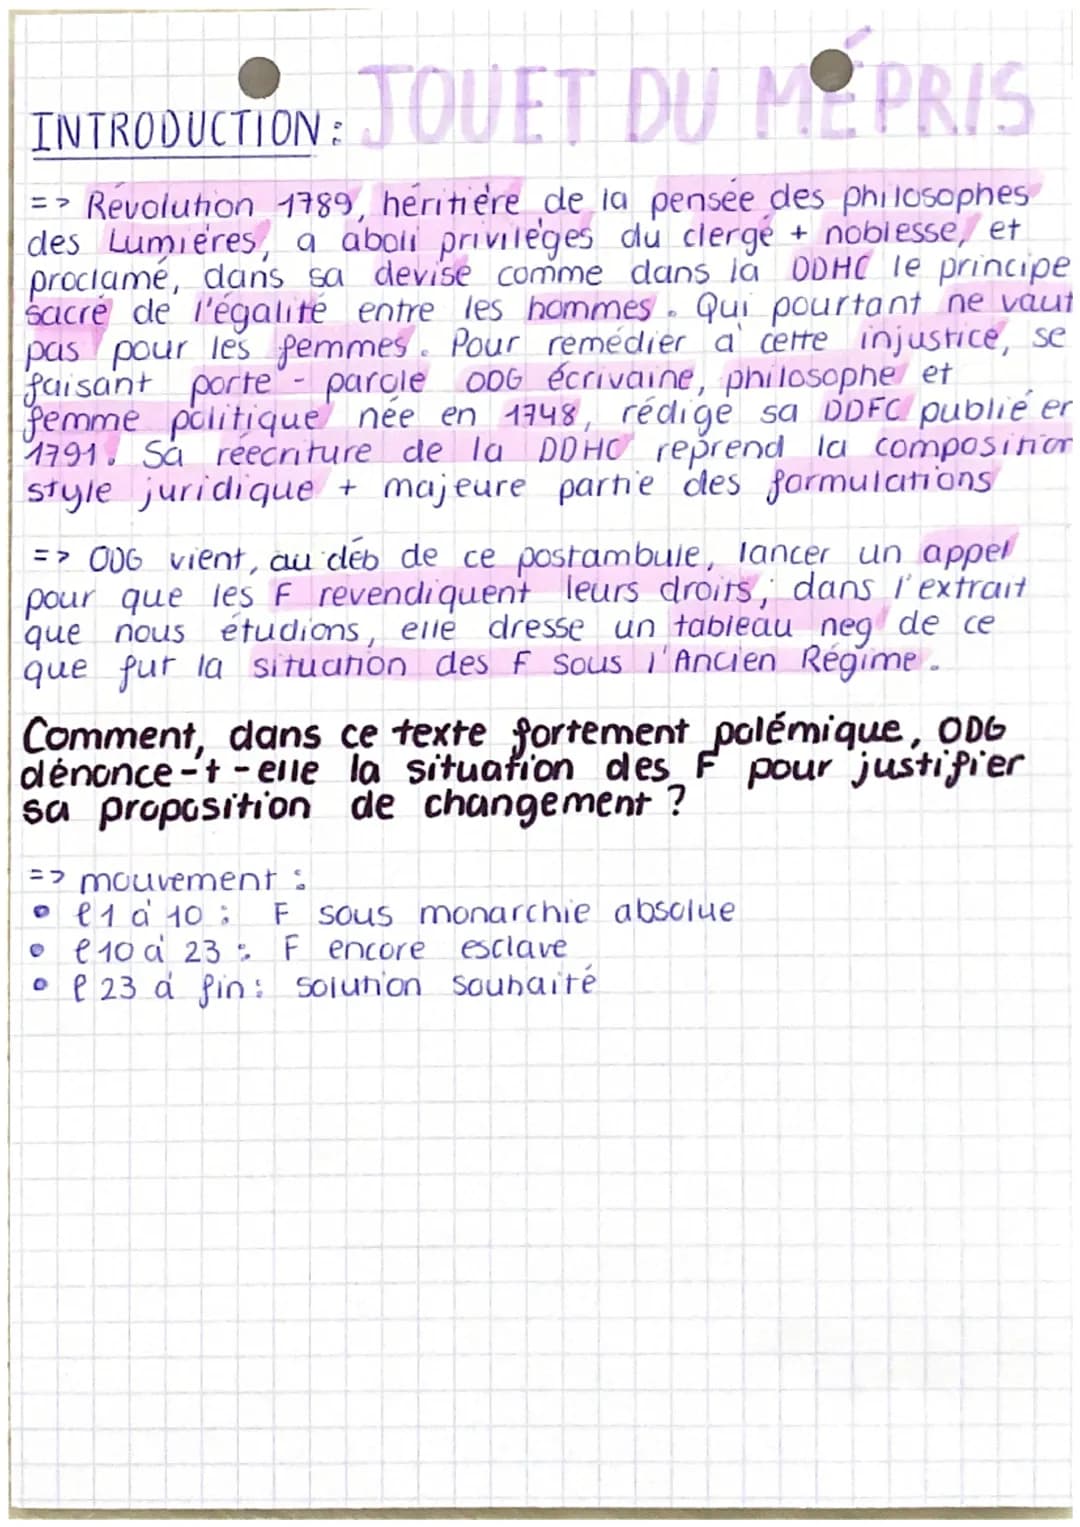 JOUET DU MÉPRIS
INTRODUCTION :
=> Révolution 1789, héritière de la pensée des philosophes
des Lumières, a aboli privilèges du clergé + noblesse, et
proclamé, dans sa devise comme dans la DDHC le principe
sacré de l'égalité entre les hommes. Qui pourtant ne vaut
pas pour les femmes. Pour remédier à cette injustice, se
faisant porte - parole ODG écrivaine, philosophe et
femme politique née en 1748, rédige sa DDFC publié en
1791. Sa réécriture de la DDHC reprend la composition
style juridique + majeure partie des formulations
=> ODG vient, au déb de ce postambule, lancer un appel
pour que les F revendiquent leurs droits ; dans l'extrait
que nous étudions, elle dresse un tableau neg de ce
que fut la situation des F sous l'Ancien Régime.
Comment, dans ce texte fortement polémique, ODG
dénonce-t-elle la situation des F pour justifier
sa proposition de changement ?
=> mouvement :
• l1 à 10 : F sous monarchie absolue
• l10 à 23 : F encore esclave
• l 23 à fin : solution souhaité